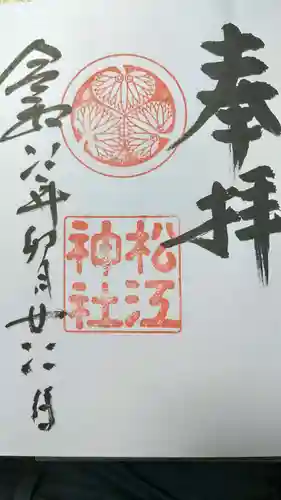 奉拝
松江
神社
令和六年卯月廿六日